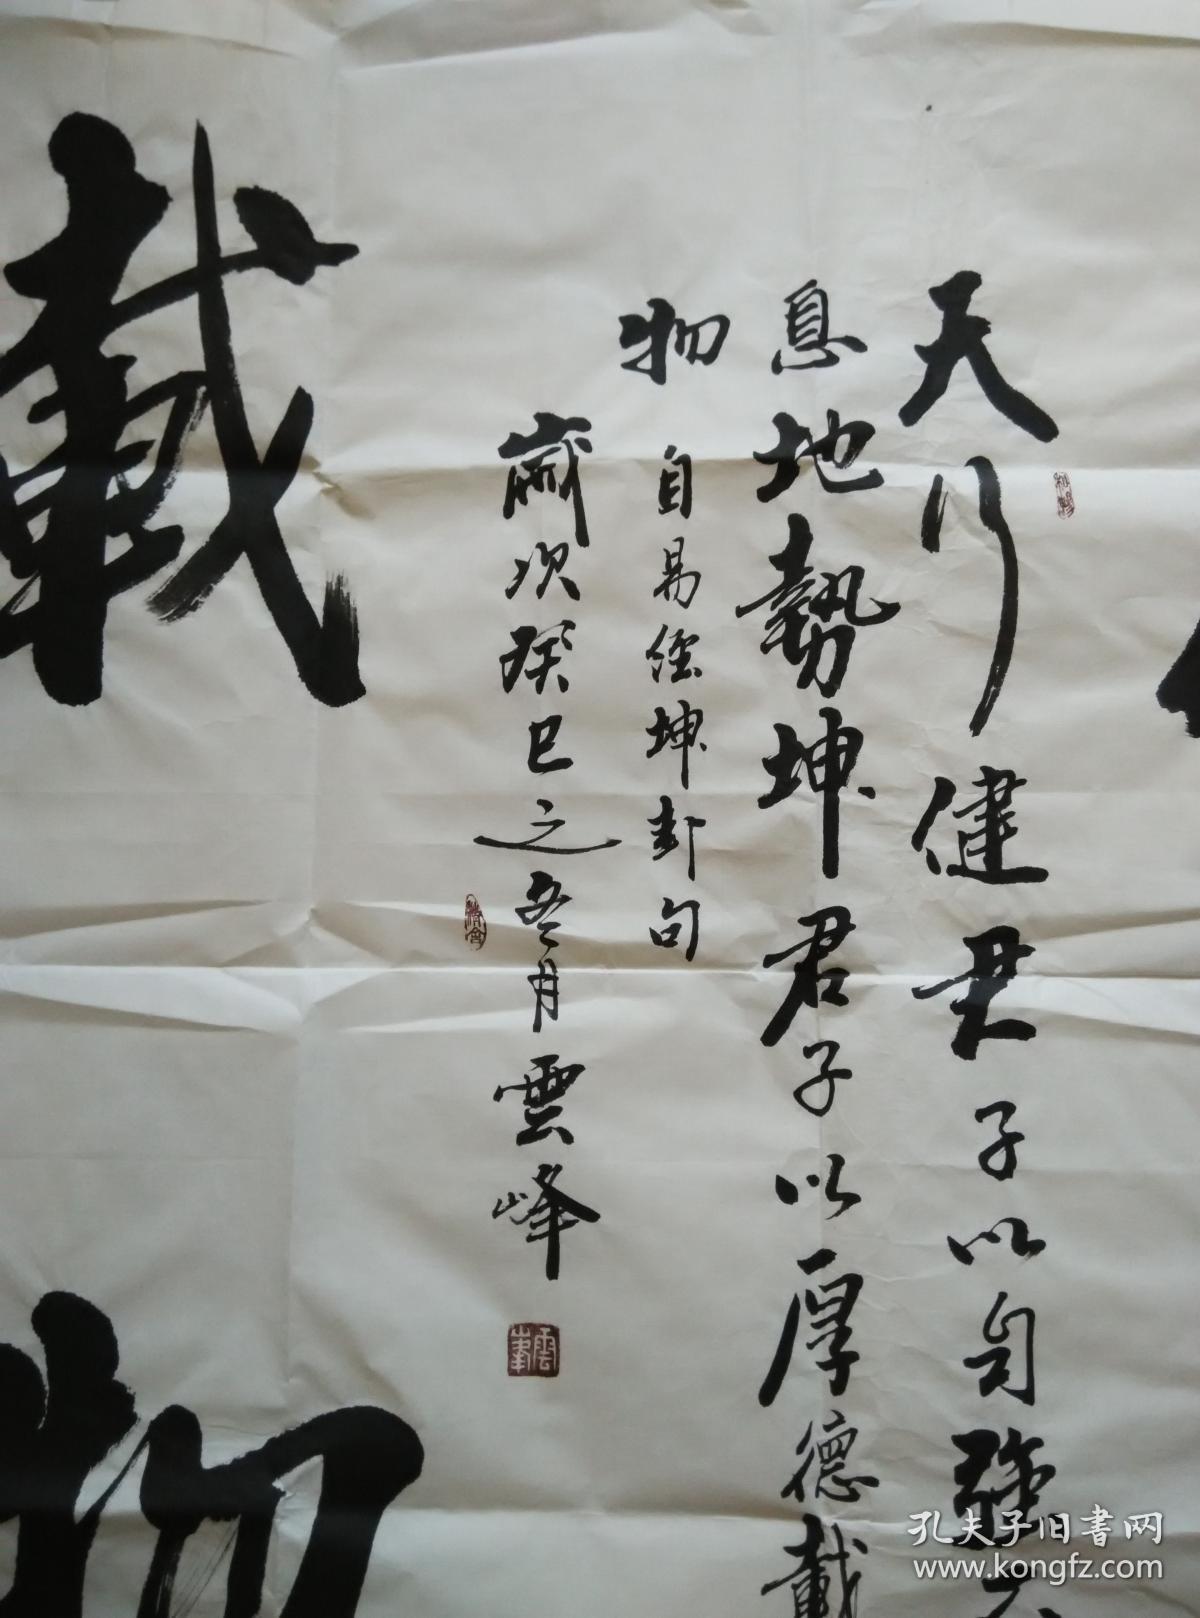 天行健君子以自強不
息地勢坤君子以厚德載
物
自易經坤卦句
歲次癸巳之冬月雲峰
雲峯
載
物
孔夫子旧書网
www.kongfz.com